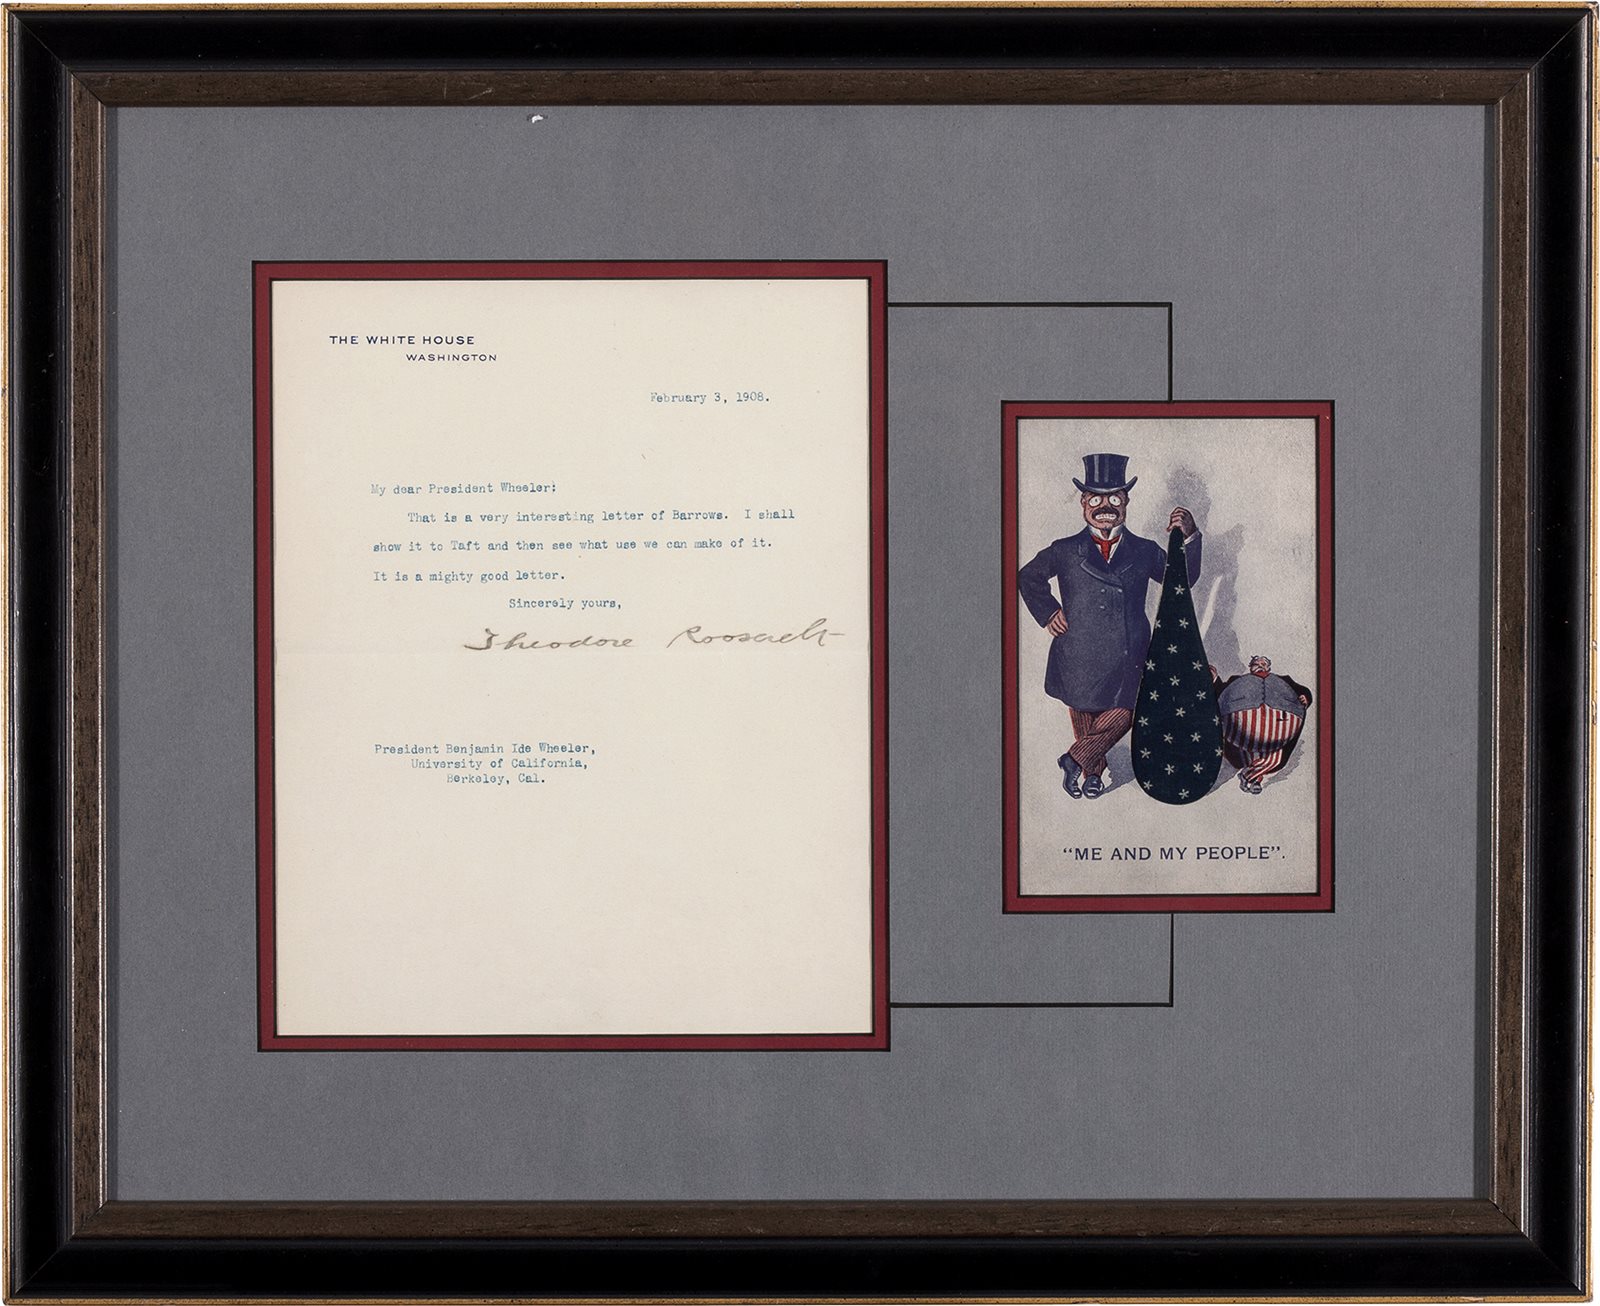 THE WHITE HOUSE
WASHINGTON
February 3, 1908.
My dear President Wheeler:
That is a very interesting letter of Barrows. I shall
show it to Taft and then see what use we can make of it.
It is a mighty good letter.
Sincerely yours,
Theodore Roosevelt
President Benjamin Ide Wheeler,
University of California,
Berkeley, Cal.
"ME AND MY PEOPLE".